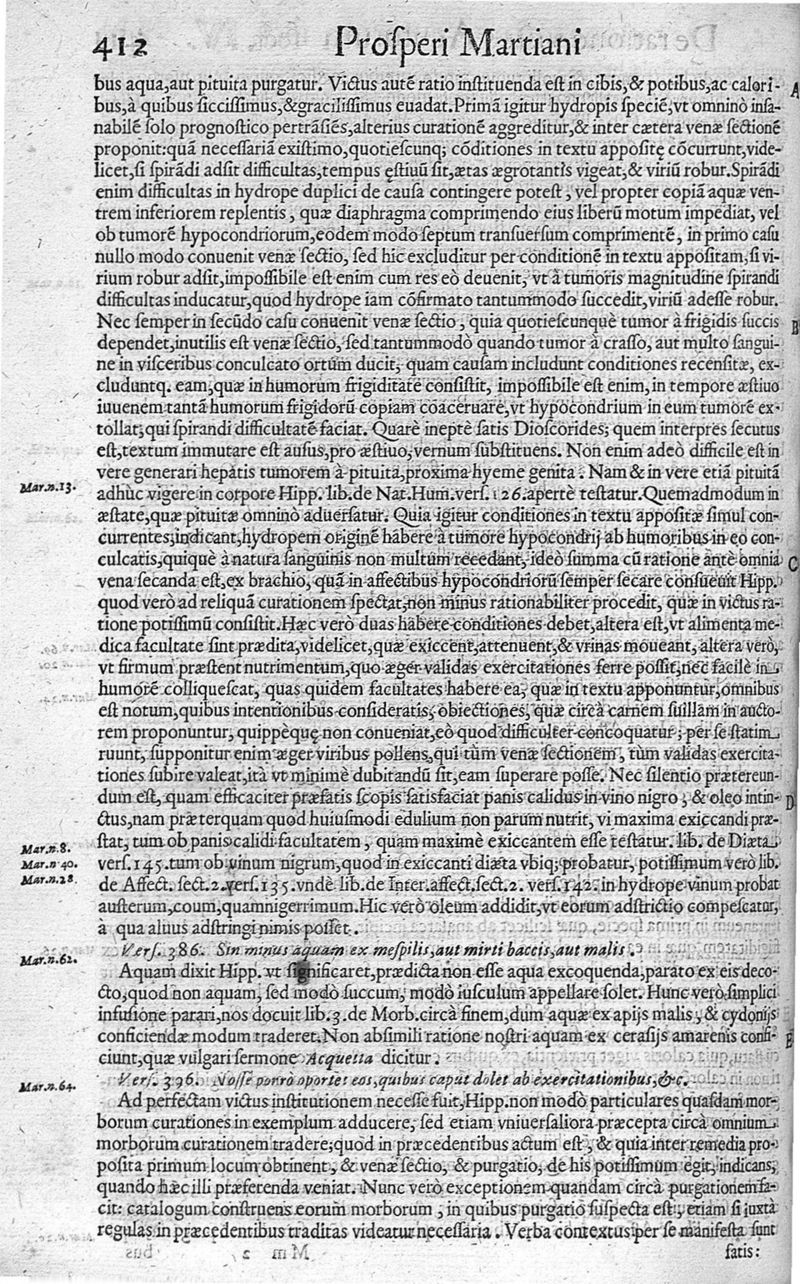 412 Prosperi Martiani
bus aqua,aut pituita purgatur. Victus autē ratio instituenda est in cibis,& potibus,ac calori-
bus,à quibus siccissimus,&gracilissimus euadat.Primā igitur hydropis speciē,vt omninò insa-
nabilē solo prognostico pertrāsiēs,alterius curationē aggreditur,& inter cætera venæ sectionē
proponit:quā necessariā existimo,quotiescunq; cōditiones in textu appositę cōcurrunt,vide-
licet,si spirādi adsit difficultas,tempus ęstiuū sit,ætas ægrotantis vigeat,& viriū robur.Spirādi
enim difficultas in hydrope duplici de causa contingere potest, vel propter copiā aquæ ven-
trem inferiorem replentis, quæ diaphragma comprimendo eius liberū motum impediat, vel
ob tumorē hypocondriorum,eodem modo septum transuersum comprimentē, in primo casu
nullo modo conuenit venæ sectio, sed hic excluditur per conditionē in textu appositam,si vi-
rium robur adsit,impossibile est enim cum res eò deuenit, vt à tumoris magnitudine spirandi
difficultas inducatur,quod hydrope iam cōfirmato tantummodo succedit,viriū adesse robur.
Nec semper in secūdo casu conuenit venæ sectio, quia quotiescunquè tumor à frigidis succis
dependet,inutilis est venæ sectio, sed tantummodò quando tumor à crasso, aut multo sangui-
ne in visceribus conculcato ortum ducit, quam causam includunt conditiones recensitæ, ex-
cluduntq. eam,quæ in humorum frigiditate consistit, impossibile est enim,in tempore æstiuo
iuuenem tantā humorum frigidorū copiam coaceruare,vt hypocondrium in eum tumorē ex-
tollat,qui spirandi difficultatē faciat. Quarè ineptè satis Dioscorides; quem interpres secutus
est,textum immutare est ausus,pro æstiuo,vernum substituens. Non enim adeò difficile est in
vere generari hepatis tumorem à pituita,proxima hyeme genita. Nam & in vere etiā pituitā
Mar.n.13. adhùc vigere in corpore Hipp. lib.de Nat.Hum.vers.126.apertè testatur.Quemadmodum in
æstate,quæ pituitæ omninò aduersatur. Quia igitur conditiones in textu appositæ simul con-
currentes,indicant,hydropem originē habere à tumore hypocondrij ab humoribus in eo con-
culcatis,quiquè à natura sanguinis non multum recedant, ideò summa cū ratione antè omnia
vena secanda est,ex brachio, quā in affectibus hypocondriorū semper secare consueuit Hipp.
quod verò ad reliquā curationem spectat,non minus rationabiliter procedit, quæ in victus ra-
tione potissimū consistit.Hæc verò duas habere conditiones debet,altera est,vt alimenta me-
dica facultate sint prædita,videlicet,quæ exiccent,attenuent,& vrinas moueant, altera verò,
vt firmum præstent nutrimentum,quo æger validas exercitationes ferre possit,nec facilè in
humorē colliquescat, quas quidem facultates habere ea, quæ in textu apponuntur,omnibus
est notum,quibus intentionibus consideratis, obiectiones, quæ circà carnem suillam in aucto-
rem proponuntur, quippèquę non conueniat,eò quod difficulter concoquatur; per se statim
ruunt, supponitur enim æger viribus pollens,qui tùm venæ sectionem, tùm validas exercita-
tiones subire valeat,ità vt minimè dubitandū sit,eam superare posse. Nec silentio prætereun-
dum est, quam efficaciter præfatis scopis satisfaciat panis calidus in vino nigro, & oleo intin-
ctus,nam præterquam quod huiusmodi edulium non parum nutrit, vi maxima exiccandi præ-
Mar.n.8. stat, tum ob panis calidi facultatem, quam maximè exiccantem esse testatur. lib. de Diæta
Mar.n.40. vers.145.tum ob vinum nigrum,quod in exiccanti diæta vbiq; probatur, potissimum verò lib.
Mar.n.28. de Affect. sect.2.vers.135.vndè lib.de Inter.affect.sect.2. vers.142. in hydrope vinum probat
austerum,coum,quamnigerrimum.Hic verò oleum addidit,vt eorum adstrictio compescatur,
à qua aluus adstringi nimis posset.
Mar.n.62. Vers. 386. Sin minus aquam ex mespilis,aut mirti baccis,aut malis.
Aquam dixit Hipp. vt significaret,prædicta non esse aqua excoquenda,parato ex eis deco-
cto,quod non aquam, sed modò succum, modò iusculum appellare solet. Hunc verò simplici
infusione parari,nos docuit lib.3.de Morb.circà finem,dum aquæ ex apijs malis, & cydonijs
conficiendæ modum traderet.Non absimili ratione nostri aquam ex cerasijs amarenis confi-
ciunt,quæ vulgari sermone Acquetta dicitur.
Mar.n.64. Vers. 396. Nosse porrò oportet eos,quibus caput dolet ab exercitationibus,&c.
Ad perfectam victus institutionem necesse fuit,Hipp.non modò particulares quasdam mor-
borum curationes in exemplum adducere, sed etiam vniuersaliora præcepta circà omnium
morborum curationem tradere;quod in præcedentibus actum est, & quia inter remedia pro-
posita primum locum obtinent, & venæ sectio, & purgatio, de his potissimum egit, indicans,
quando hæc illi præferenda veniat. Nunc verò exceptionem quandam circà purgationem fa-
cit: catalogum construens eorum morborum, in quibus purgatio suspecta est, etiam si iuxtà
regulas in præcedentibus traditas videatur necessaria. Verba contextus per se manifesta sunt
satis:
A
B
C
D
E